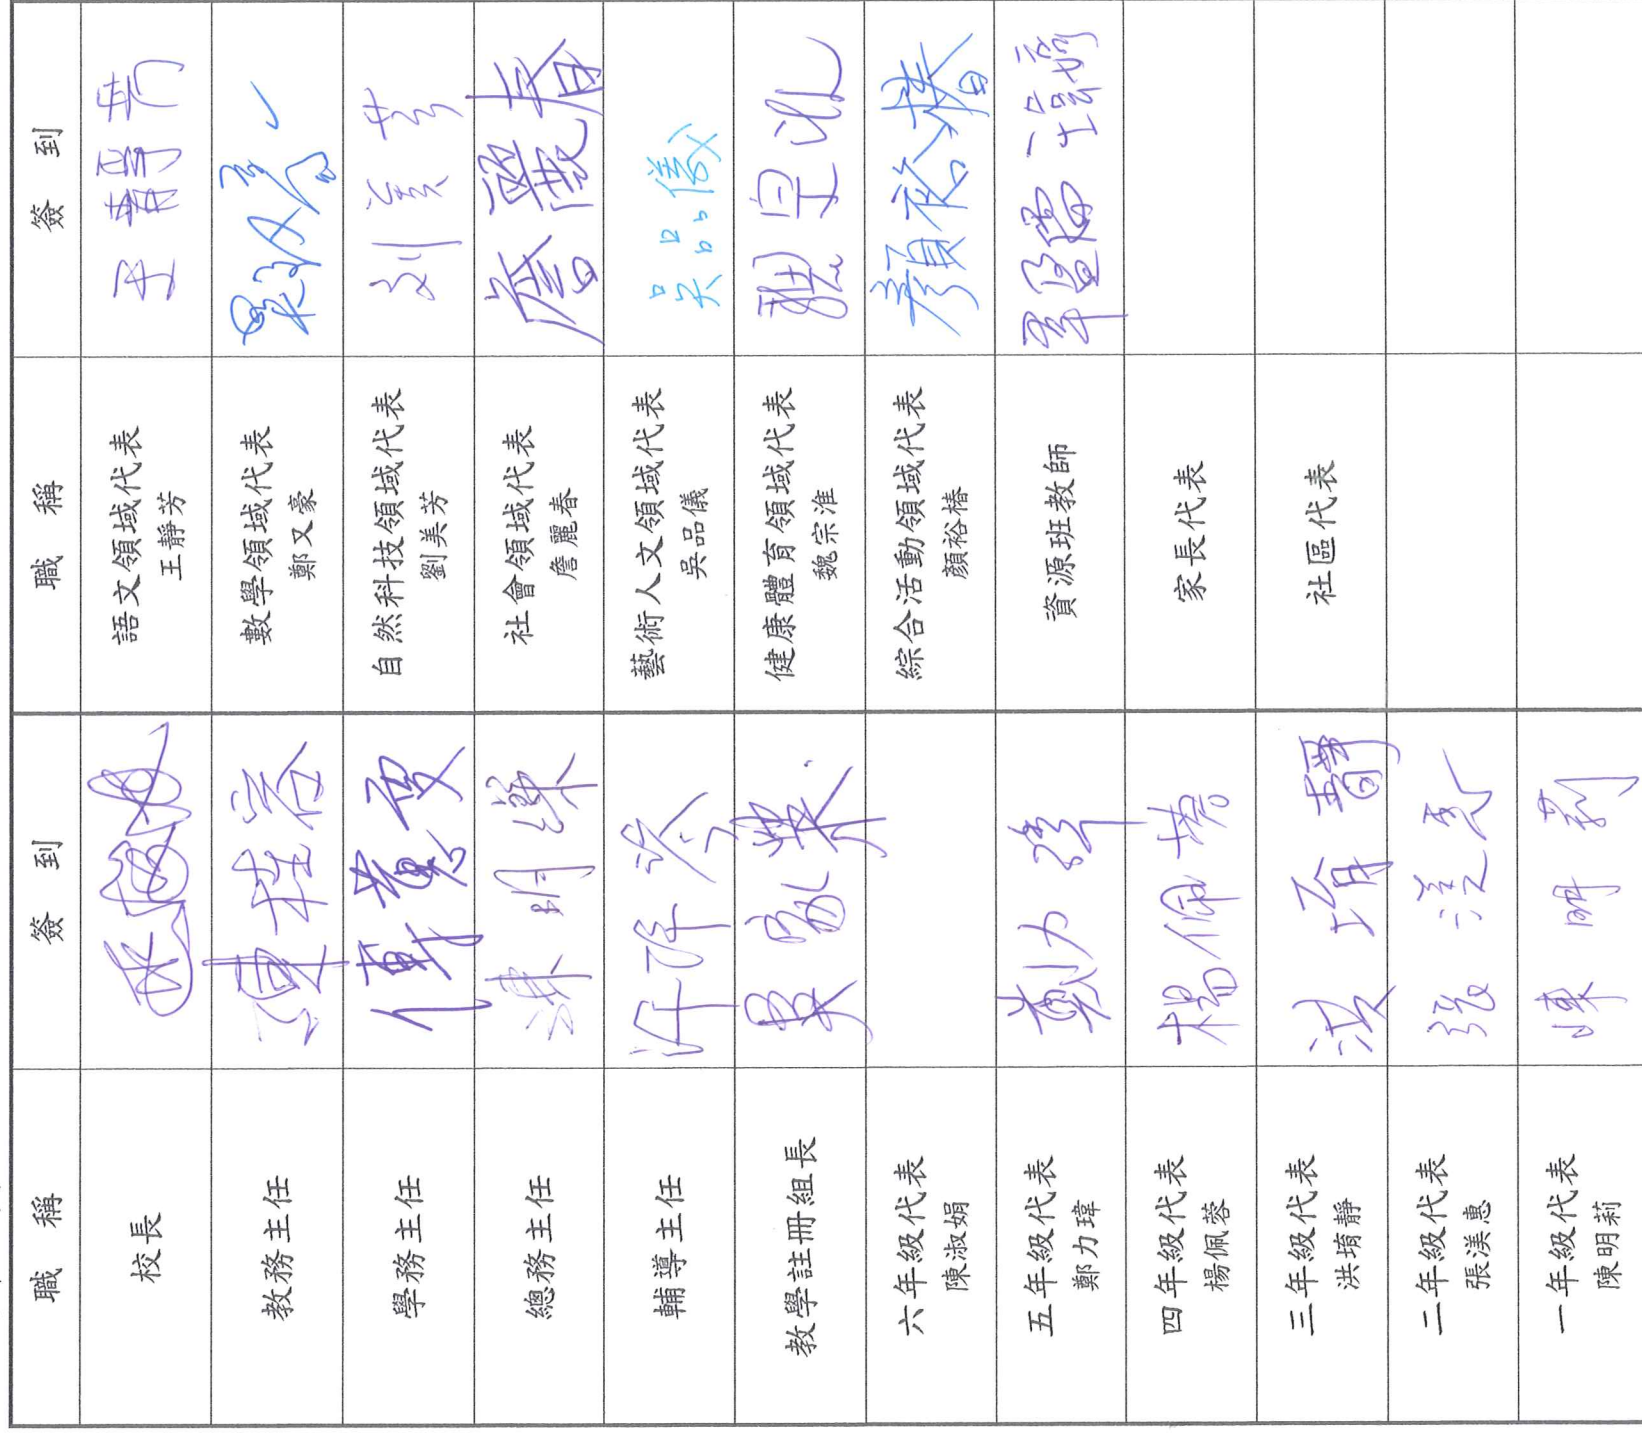 職 稱 簽 到 職 稱 簽 到
校長 語文領域代表 王靜芳
王靜芳
教務主任 數學領域代表
鄭又豪
學務主任 自然科技領域代表 劉美芳
劉美芳
總務主任 社會領域代表 詹麗春
詹麗春
輔導主任 藝術人文領域代表 吳品儀
吳品儀
教學註冊組長 健康體育領域代表 魏宗淮
魏宗淮
六年級代表 綜合活動領域代表 顏裕椿
陳淑娟 顏裕椿
五年級代表 鄭力瑋 資源班教師
鄭力瑋
四年級代表 楊佩蓉 家長代表
楊佩蓉
三年級代表 洪堉靜 社區代表
洪堉靜
二年級代表
張渼惠
一年級代表 陳明莉
陳明莉